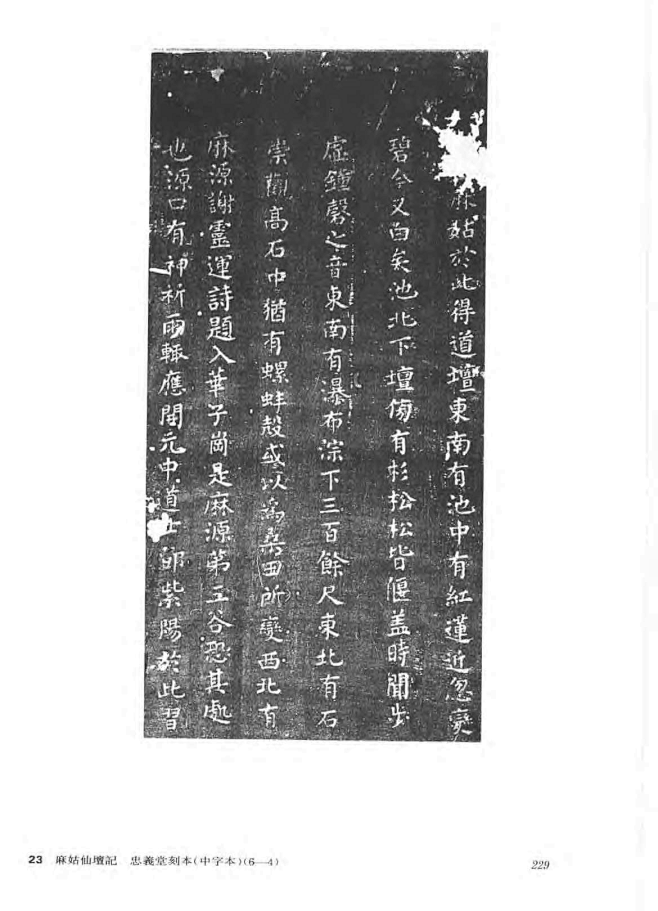 麻姑於此得道壇東南有池中有紅蓮近忽變
碧今又白矣池北下壇傍有杉松松皆偃盖時聞步
虛鍾磬之音東南有瀑布淙下三百餘尺東北有石
崇觀高石中猶有螺蚌殼或以為桑田所變西北有
麻源謝靈運詩題入華子崗是麻源第三谷恐其處
也源口有神祈雨輒應開元中道士鄧紫陽於此習
23 麻姑仙壇記 忠義堂刻本(中字本)(6—4)
229